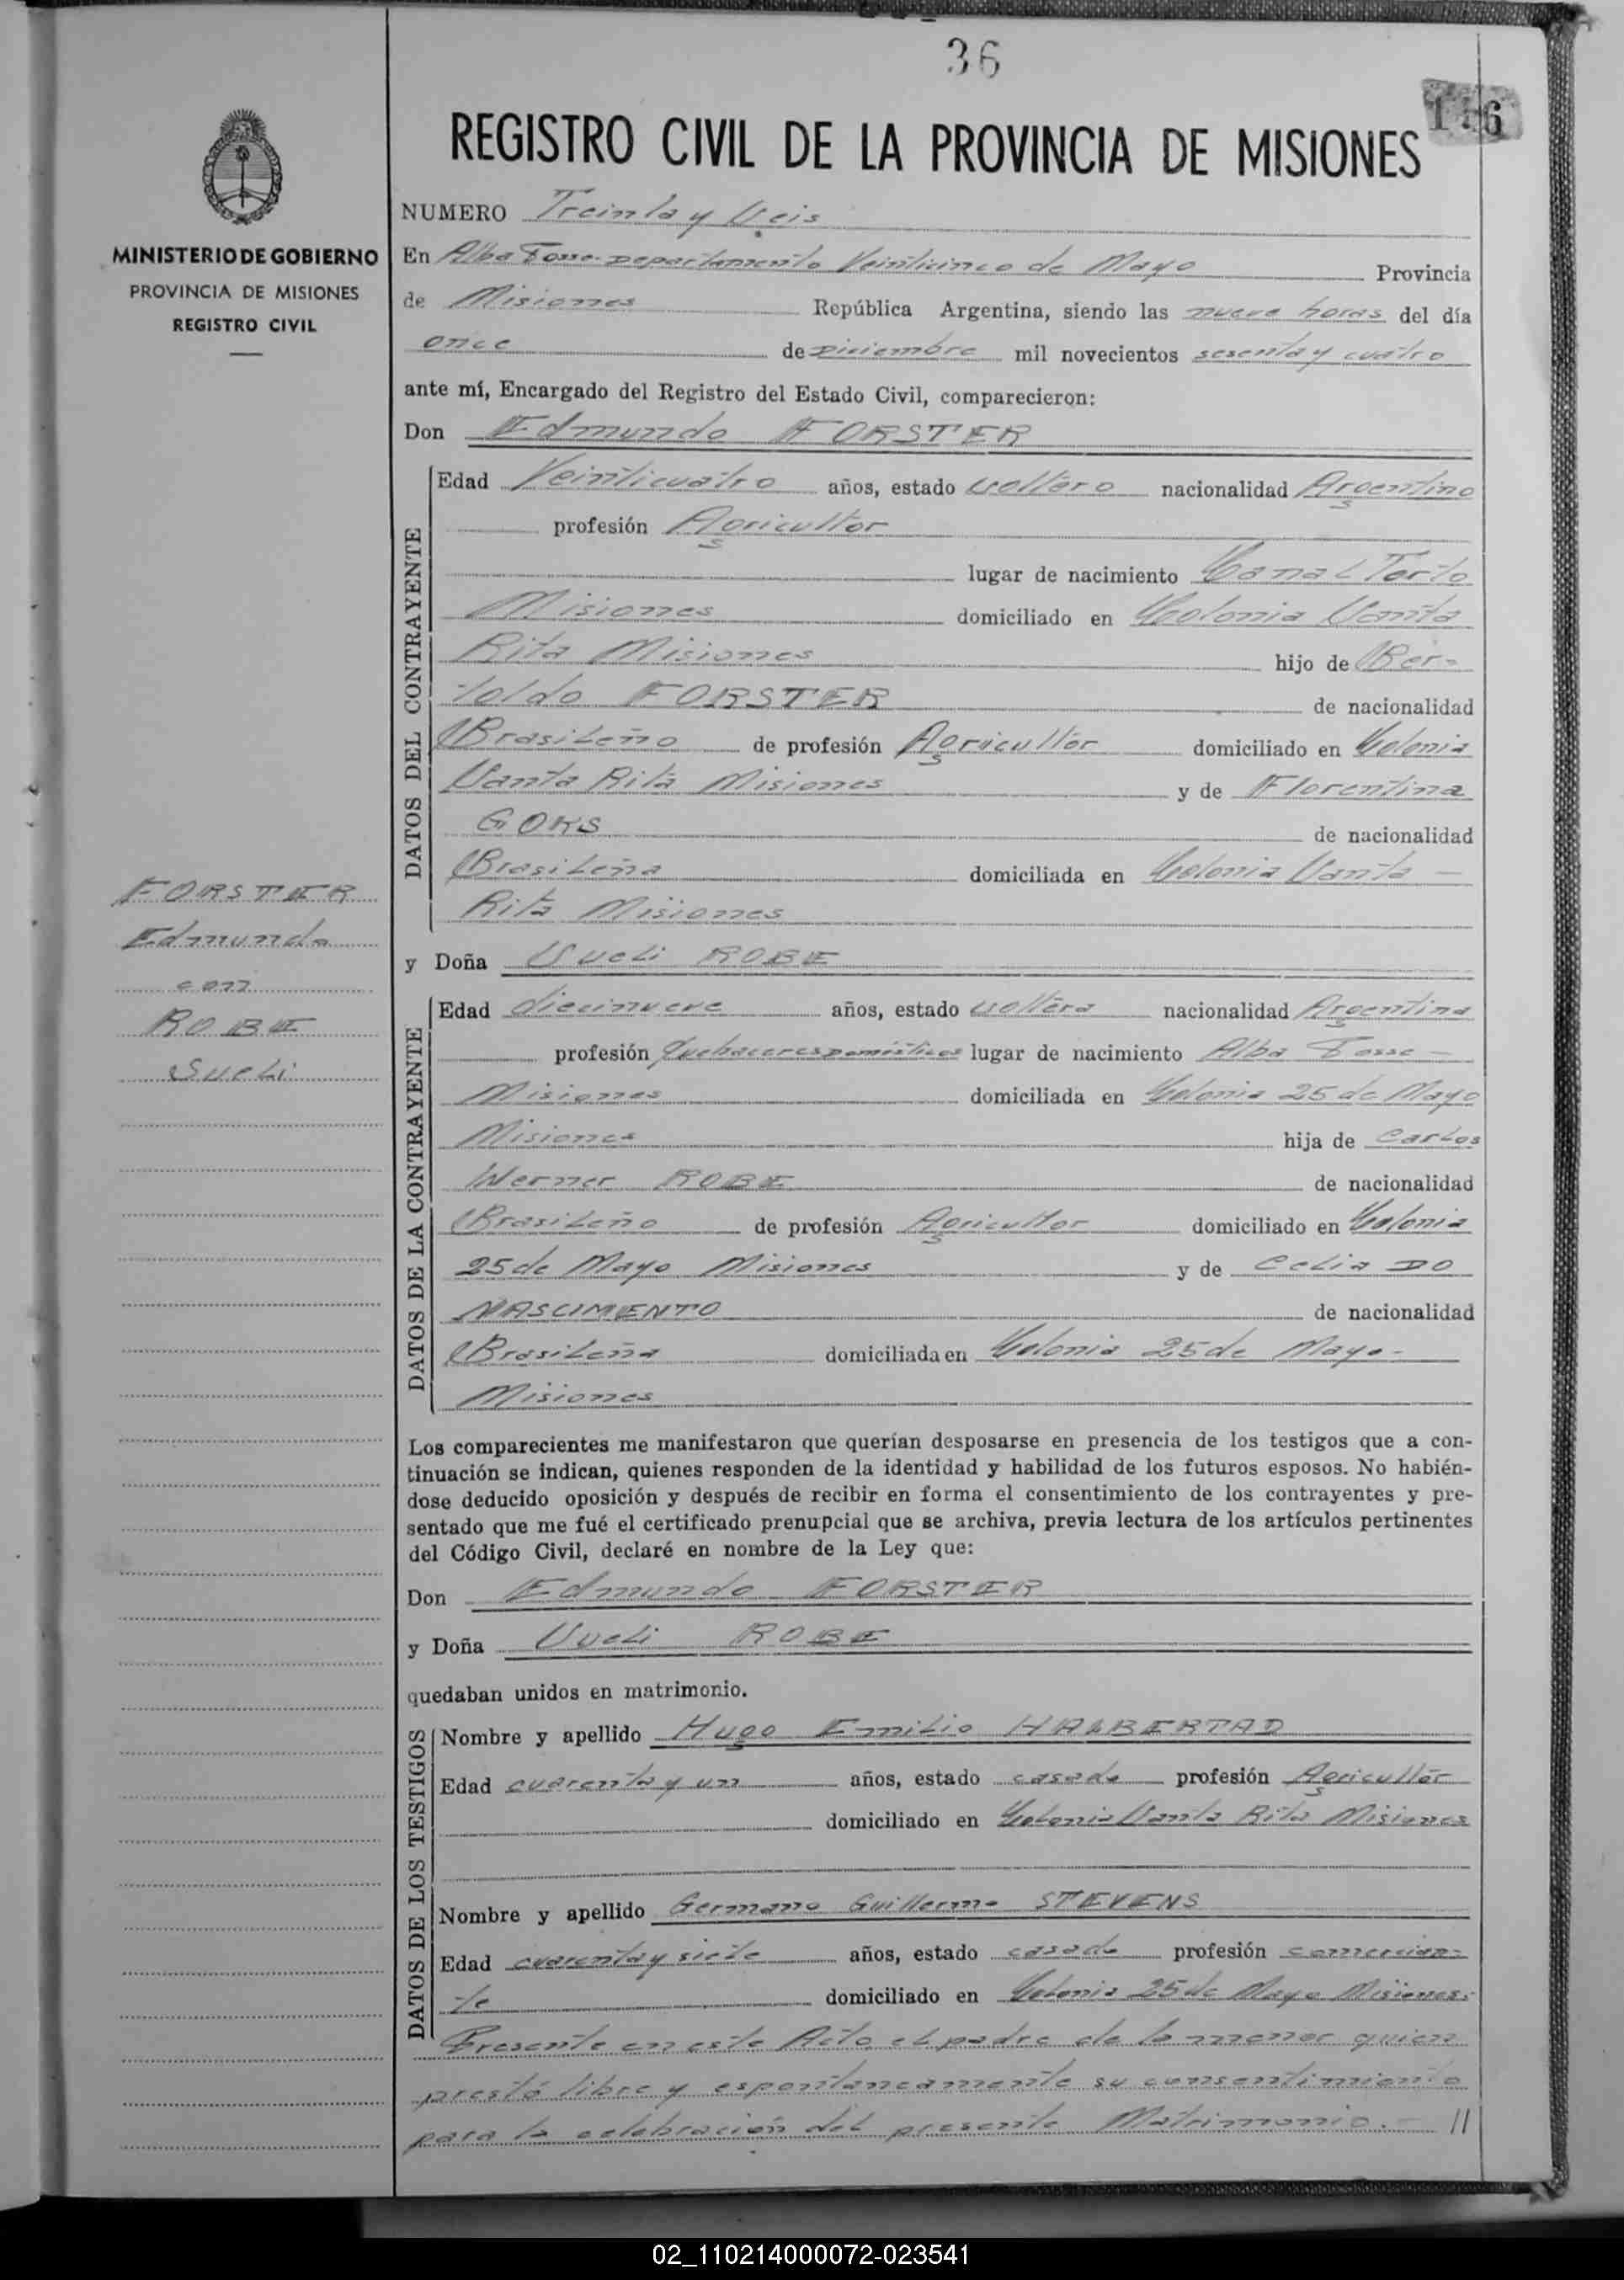 36
REGISTRO CIVIL DE LA PROVINCIA DE MISIONES
MINISTERIO DE GOBIERNO
PROVINCIA DE MISIONES
REGISTRO CIVIL
NUMERO Treinta y Seis
En Alba Posse Departamento Veinticinco de Mayo Provincia
de Misiones República Argentina, siendo las nueve horas del día
once de Diciembre mil novecientos sesenta y cuatro
ante mí, Encargado del Registro del Estado Civil, comparecieron:
Don Edmundo FORSTER
DATOS DEL CONTRAYENTE
Edad Veinticuatro años, estado soltero nacionalidad Argentino
profesión Agricultor
lugar de nacimiento Canal Torto
Misiones domiciliado en Colonia Santa
Rita Misiones hijo de Ber-
toldo FORSTER de nacionalidad
Brasileño de profesión Agricultor domiciliado en Colonia
Santa Rita Misiones y de Florentina
GOKS de nacionalidad
Brasileña domiciliada en Colonia Santa -
Rita Misiones
FORSTER
Edmundo
con
ROBE
Sueli
y Doña Sueli ROBE
DATOS DE LA CONTRAYENTE
Edad diecinueve años, estado soltera nacionalidad Argentina
profesión Quehaceres Domésticos lugar de nacimiento Alba Posse -
Misiones domiciliada en Colonia 25 de Mayo
Misiones hija de Carlos
Werner ROBE de nacionalidad
Brasileño de profesión Agricultor domiciliado en Colonia
25 de Mayo Misiones y de Celia DO
NASCIMIENTO de nacionalidad
Brasileña domiciliada en Colonia 25 de Mayo -
Misiones
Los comparecientes me manifestaron que querían desposarse en presencia de los testigos que a con-
tinuación se indican, quienes responden de la identidad y habilidad de los futuros esposos. No habién-
dose deducido oposición y después de recibir en forma el consentimiento de los contrayentes y pre-
sentado que me fué el certificado prenupcial que se archiva, previa lectura de los artículos pertinentes
del Código Civil, declaré en nombre de la Ley que:
Don Edmundo FORSTER
y Doña Sueli ROBE
quedaban unidos en matrimonio.
DATOS DE LOS TESTIGOS
Nombre y apellido Hugo Emilio HALBERTAD
Edad cuarenta y un años, estado casado profesión Agricultor
domiciliado en Colonia Santa Rita Misiones
Nombre y apellido Germano Guillermo STEVENS
Edad cuarenta y siete años, estado casado profesión comercian-
te domiciliado en Colonia 25 de Mayo Misiones.
Presente en este Acto el padre de la menor quien
prestó libre y espontaneamente su consentimiento
para la celebración del presente Matrimonio.- //
02_110214000072-023541